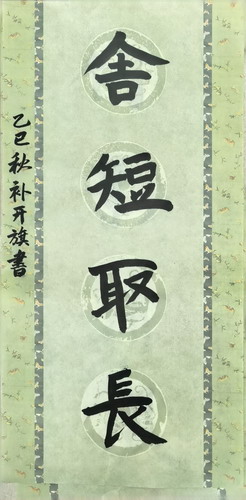 舍短取長
乙巳秋补开旗書